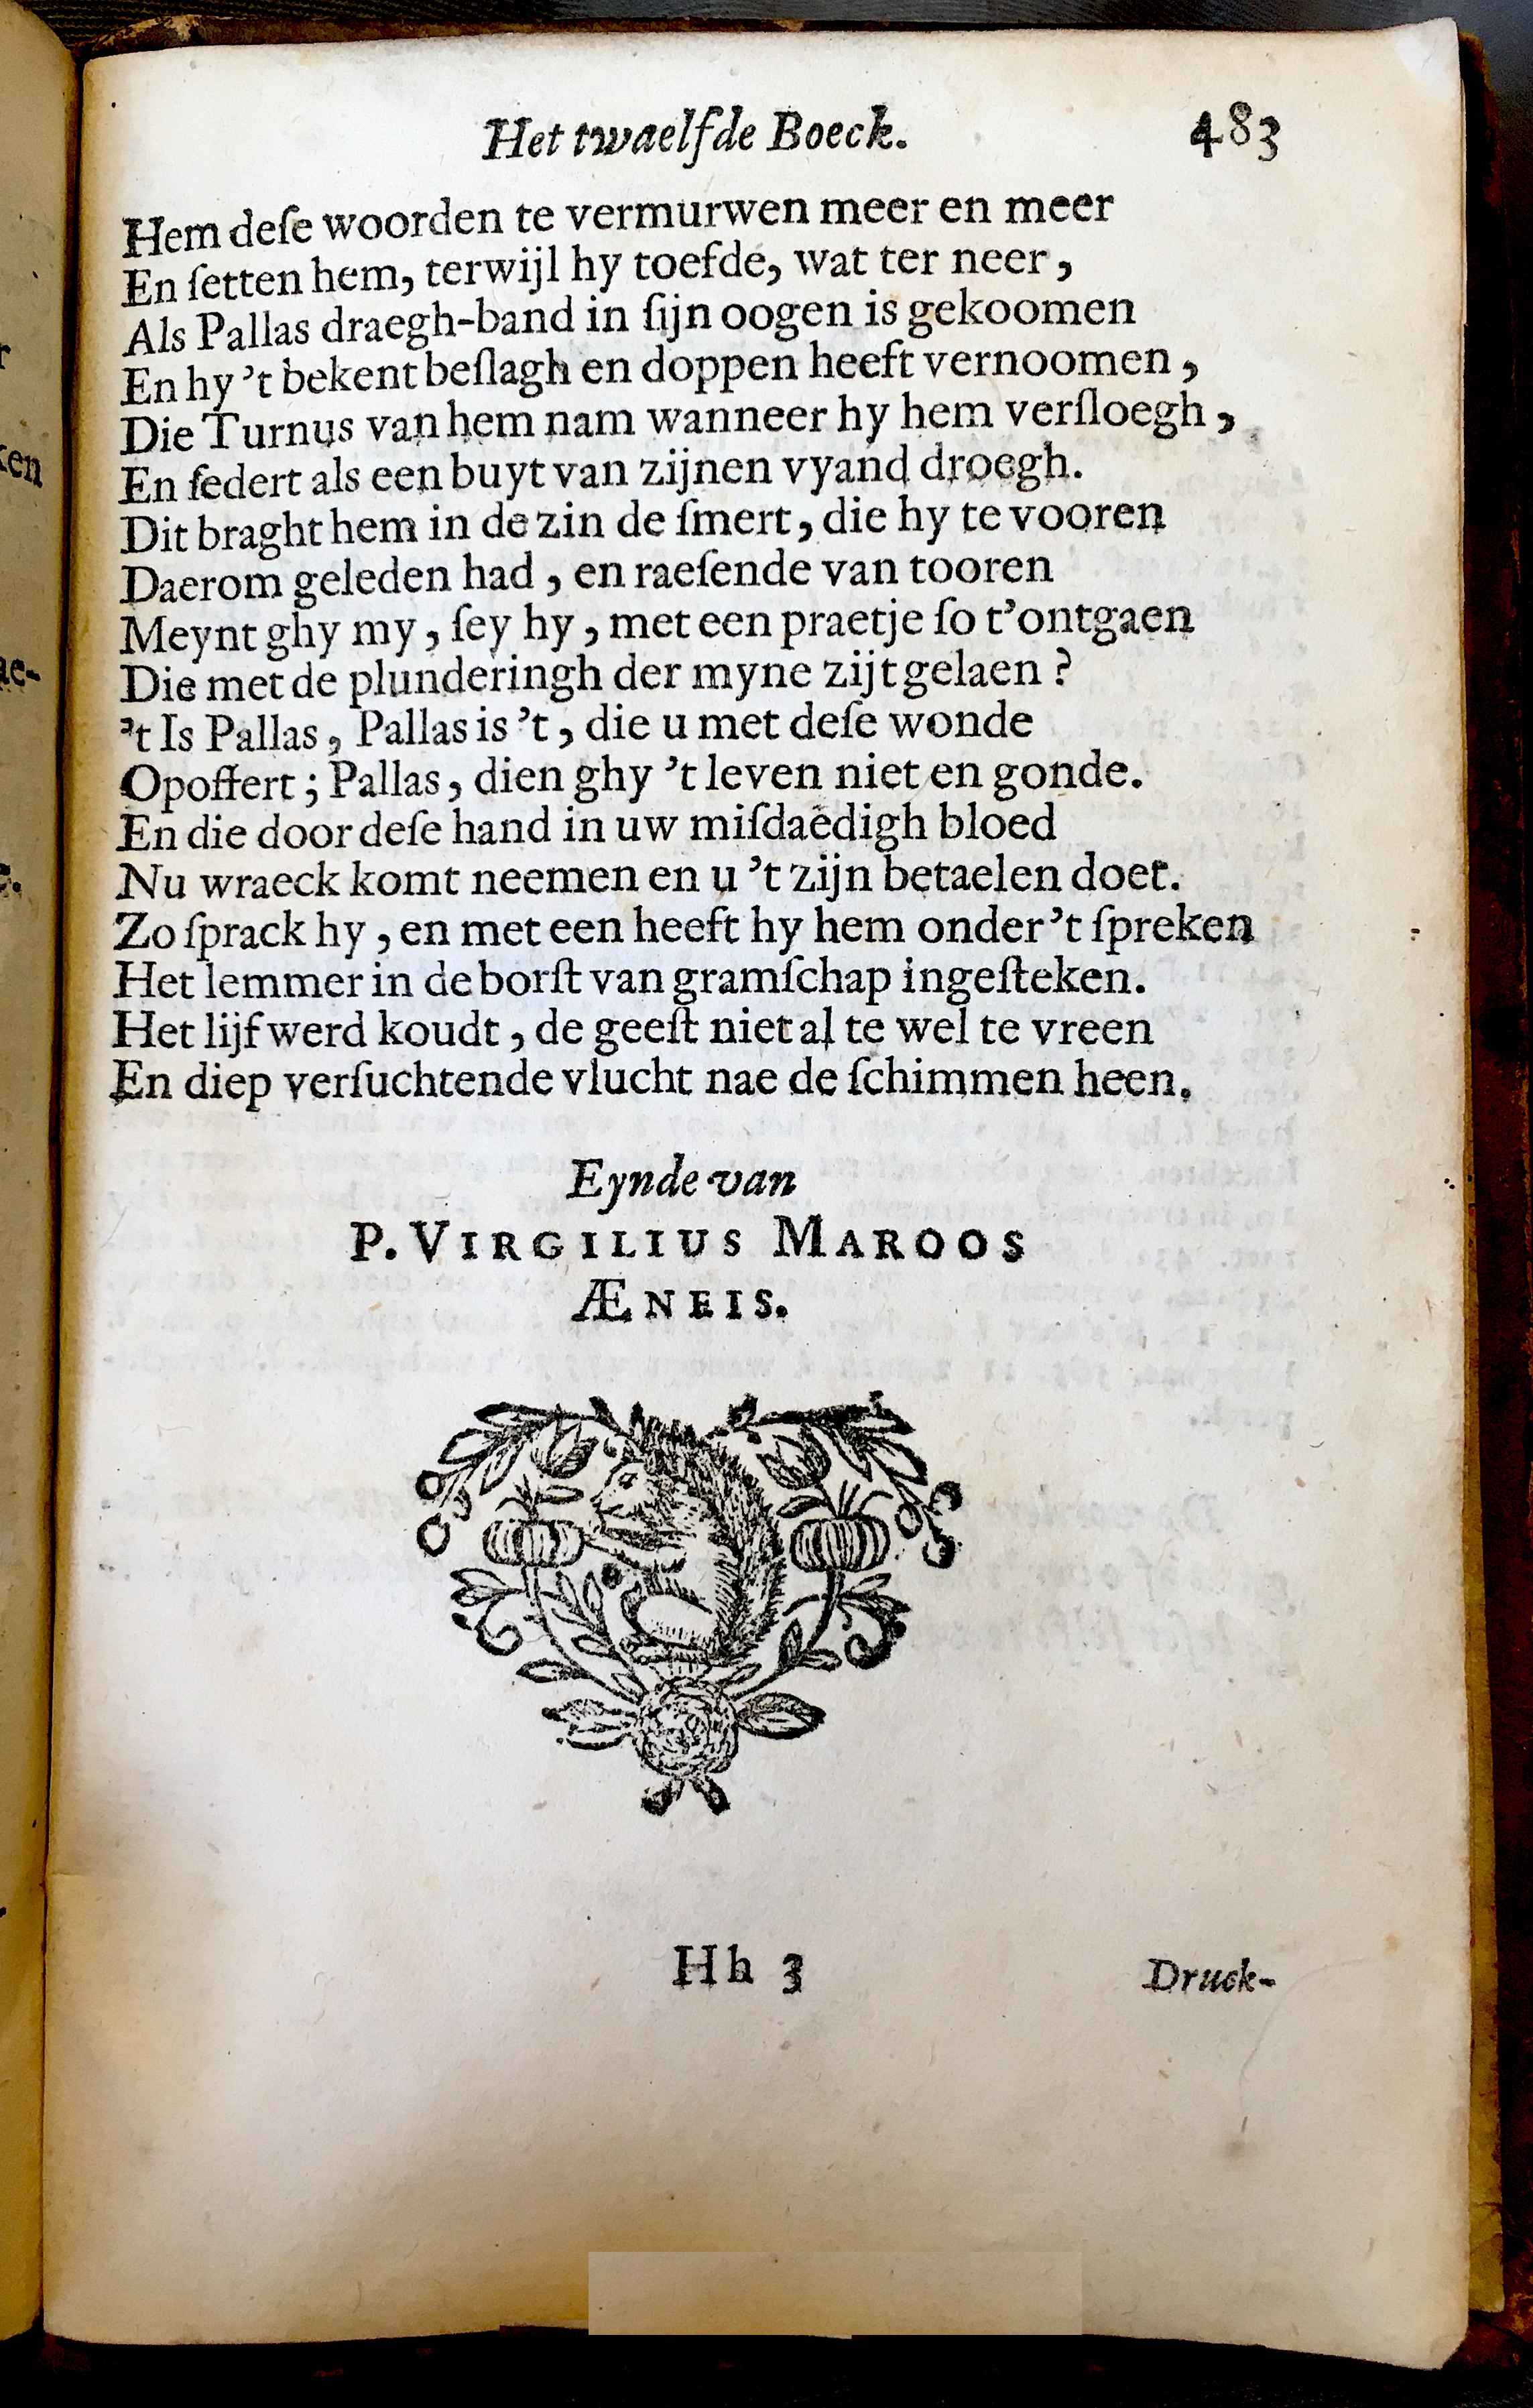 Het twaelfde Boeck. 483
Hem deſe woorden te vermurwen meer en meer
En ſetten hem, terwijl hy toefde, wat ter neer,
Als Pallas draegh-band in ſijn oogen is gekoomen
En hy 't bekent beſlagh en doppen heeft vernoomen,
Die Turnus van hem nam wanneer hy hem verſloegh,
En ſedert als een buyt van zijnen vyand droegh.
Dit braght hem in de zin de ſmert, die hy te vooren
Daerom geleden had, en raeſende van tooren
Meynt ghy my, ſey hy, met een praetje ſo t'ontgaen
Die met de plunderingh der myne zijt gelaen?
't Is Pallas, Pallas is 't, die u met deſe wonde
Opoffert; Pallas, dien ghy 't leven niet en gonde.
En die door deſe hand in uw miſdaedigh bloed
Nu wraeck komt neemen en u 't zijn betaelen doet.
Zo ſprack hy, en met een heeft hy hem onder 't ſpreken
Het lemmer in de borſt van gramſchap ingeſteken.
Het lijf werd koudt, de geeſt niet al te wel te vreen
En diep verſuchtende vlucht nae de ſchimmen heen.
Eynde van
P. VIRGILIUS MAROOS
ÆNEIS.
Hh 3 Druck-